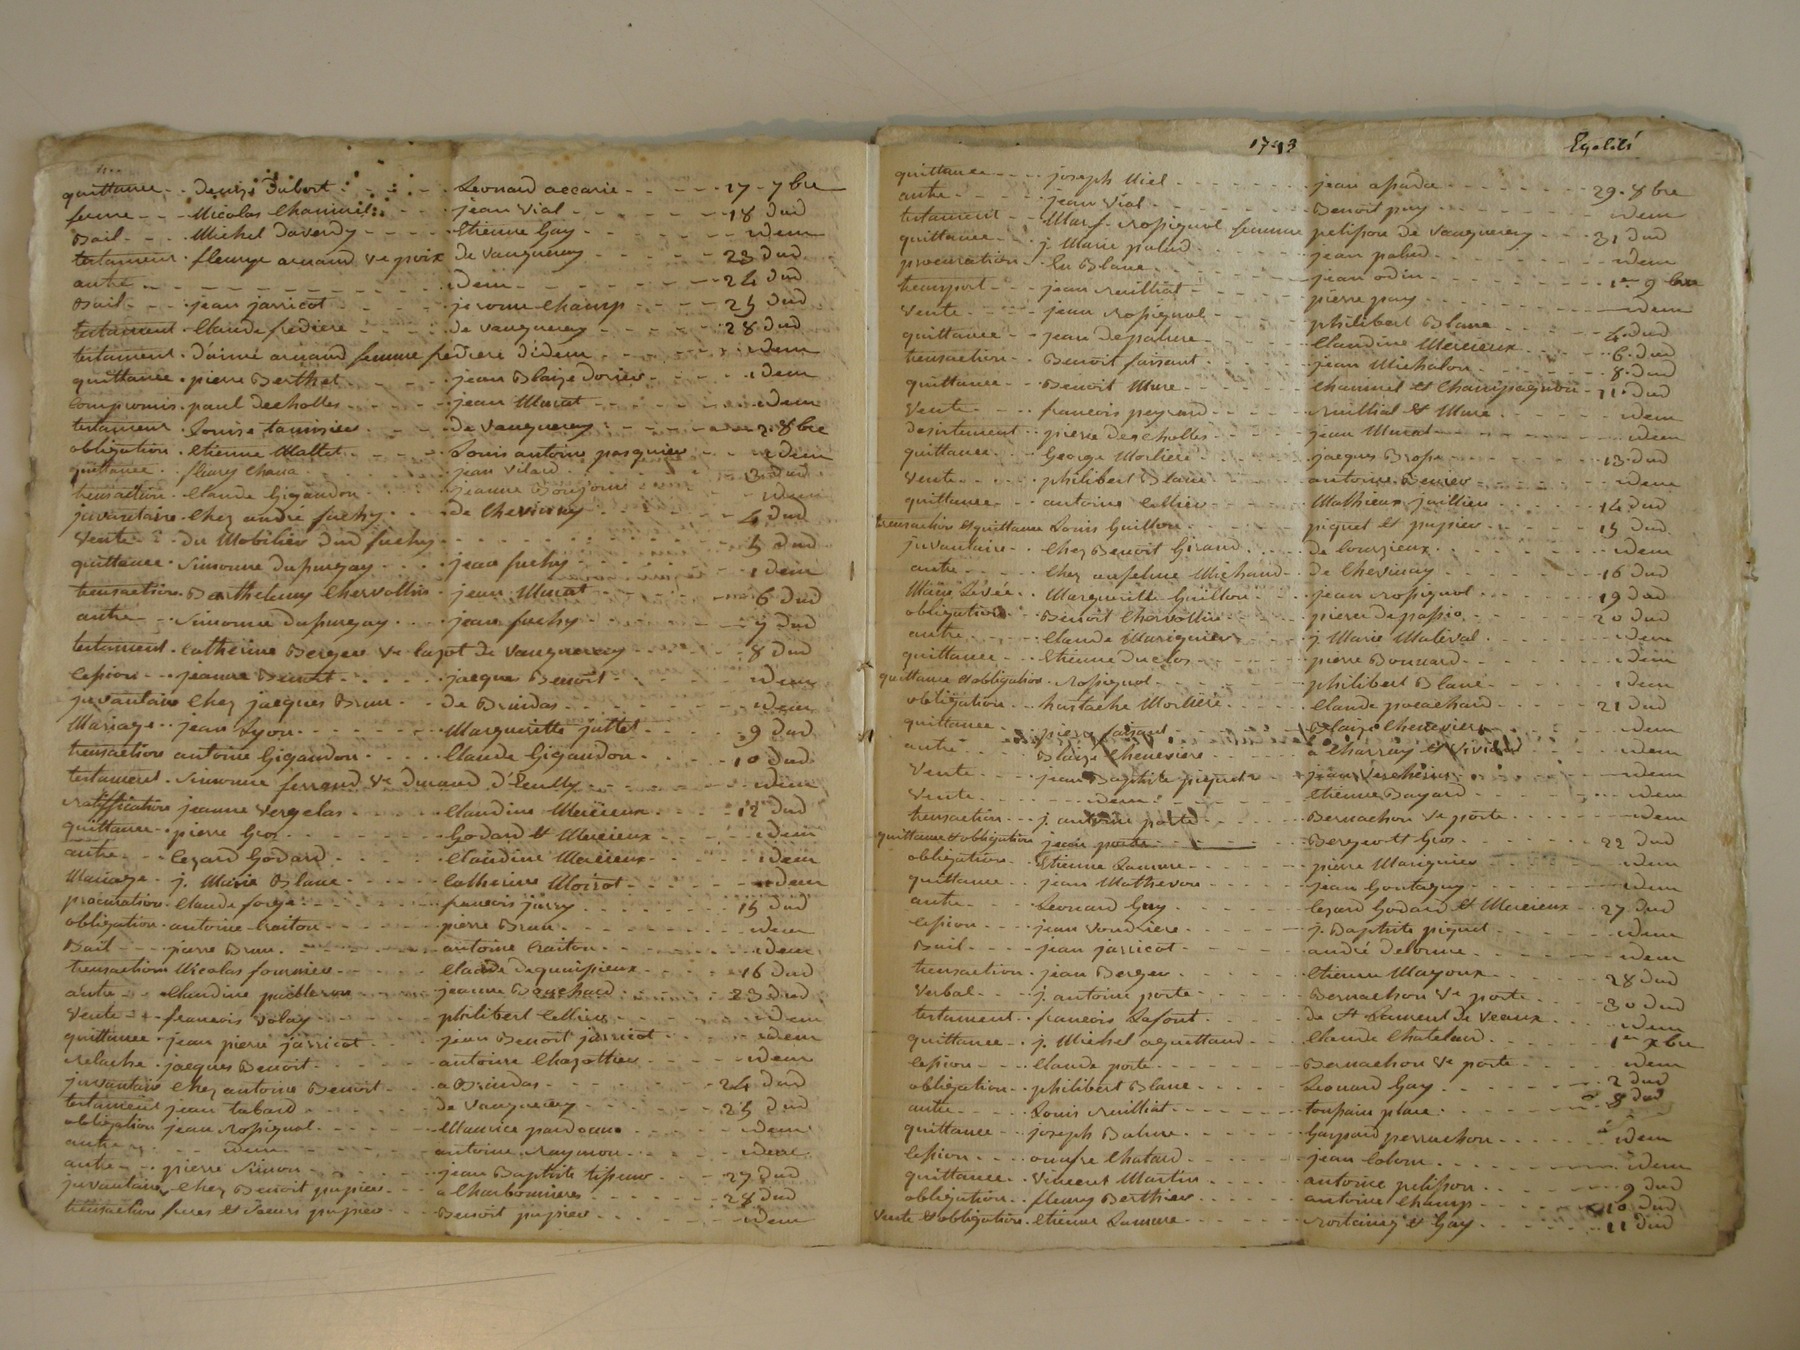 quittance - - Denis Dubost - - - Leonard accarie - - - - 17 - 7bre
ferme - - - Nicolas Chaminel - - - jean Vial - - - - - - 18 dud
Bail - - - Michel Daverdy - - - Etienne Gay - - - - - - idem
testament - fleurye arnaud ve poix de Vaugneray - - - - 23 dud
autre - - - - - - - - - - idem - - - - - - 24 dud
Bail - - - jean jarricot - - - - jerome Champ - - - - - 25 dud
testament - Claude frediere - - - - de Vaugneray - - - - 28 dud
testament - D'aimé arnaud femme fredière d'idem - - - - idem
quittance - pierre Berthet - - - - jean Blaize Dorier - - - - idem
Compromis - paul decholles - - - - jean Murat - - - - - idem
testament - Louise tamisier - - - de Vaugneray - - - - 2 - 8bre
obligation - Etienne Mallet - - - - Louis antoine pasquier - - - idem
quittance - fleury Chana - - - - jean Vilard - - - - - 3 dud
transaction - Claude Gigandon - - - jeanne Bonjour - - - - idem
jnvantaire - Chez andré fuchy - - - de Chevinay - - - - 4 dud
Vente - - du Mobilier dud fuchy - - - - - - - - 5 dud
quittance - Simonne Dupuezay - - - jean fuchy - - - - idem
transaction - Barthelemy Chervollin - jean Murat - - - - 6 dud
autre - - Simonne Dupuezay - - - jean fuchy - - - - - 7 dud
testament - Catherine Berger ve lazot de Vaugneray - - - - 8 dud
Cession - - jeanne Benoit - - - - jacque Benoit - - - - idem
jnvantaire Chez jacques Brun - - de Brindas - - - - - idem
Mariage - - jean Lyon - - - - - Margueritte juttet - - - - 9 dud
transaction antoine Gigandon - - - Claude Gigandon - - - - 10 dud
testament - Simonne ferrand ve durand d'Ecully - - - - idem
ratiffication jeanne Vergelas - - - Claudine Mercieux - - - - 12 dud
quittance - pierre Gros - - - - - Godard et Mercieux - - - - idem
autre - - - Cezard Godard - - - - Claudine Mercieux - - - - idem
Mariage - j. Marie Blanc - - - - Catherine Moirot - - - - idem
procuration - Claude forge - - - - françois jarry - - - - - 15 dud
obligation - antoine Craiton - - - - pierre Brun - - - - - idem
Bail - - - pierre Brun - - - - - antoine Craiton - - - - idem
transaction Nicolas fournier - - - - Claude dequinsieux - - - - 16 dud
autre - - Claudine pachteron - - - jeanne Bouchard - - - - 23 dud
Vente - - - françois Volay - - - - philibert Cellier - - - - idem
quittance - jean pierre jarricot - - - jean Benoit jarricot - - - - idem
relache - jacques Benoit - - - - antoine Chazottier - - - - idem
jnvantaire Chez antoine Benoit - - - a Brindas - - - - - 24 dud
testament jean tabard - - - - - de Vaugneray - - - - 25 dud
obligation jean Rossignol - - - - Maurice pardoune - - - - idem
autre - - - - idem - - - - antoine Raymon - - - - idem
autre - - - pierre Simon - - - - jean Baptiste tisseur - - - - 27 dud
jnvantaire Chez Benoit pupier - - - a Charbonnieres - - - - 28 dud
transaction freres et Soeurs pupier - - - Benoit pupier - - - - idem
1793 Egalité
quittance - - - joseph Viel - - - - - jean assada - - - - 29 - 8bre
autre - - - jean Vial - - - - - Benoit puy - - - - - idem
testament - - Marf. Rossignol femme petisson de Vaugneray - - - 31 dud
quittance - - j. Marie palud - - - - jean palud - - - - - idem
procuration - Eu Blanc - - - - - jean odin - - - - 1er 9bre
transport - - jean Ruilliat - - - - pierre puy - - - - - idem
Vente - - - jean Rossignol - - - - philibert Blanc - - - - 4 dud
quittance - - jean depalure - - - - Claudine Mercieux - - - - 6 dud
transaction - Benoit faisant - - - - jean Michalon - - - - 8 dud
quittance - - Benoit Mure - - - - Chaminel et Champagnon - 11 dud
Vente - - - françois peyrard - - - - Ruilliat et Mure - - - - idem
desistement - - pierre des Cholles - - - jean Murat - - - - - idem
quittance - - George Morliere - - - - jacques Brosse - - - - 13 dud
Vente - - - philibert Blanc - - - - antoine Benier - - - - idem
quittance - - antoine Cellier - - - - Mathieux juillien - - - - 14 dud
transaction et quittance Louis Guillon - - - piquet et pupier - - - - 15 dud
jnvantaire - - Chez Benoit Giraud - - - de Courzieux - - - - idem
autre - - - Chez anselme Michaud - - de Chevinay - - - - 16 dud
Main Levée - Margueritte Guillon - - - jean Rossignol - - - - 19 dud
obligation - - Benoit Chervollin - - - pierre depassio - - - - 20 dud
autre - - - Claude Marignier - - - - j. Marie Maleval - - - - idem
quittance - - Etienne duclos - - - - pierre Bonnard - - - - idem
quittance et obligation - Rossignol - - - - philibert Blanc - - - - idem
obligation - - hustache Morliere - - - Claude pocachard - - - - 21 dud
quittance - - pierre faisant - - - - Blaize Cheneviere - - - - idem
autre - - - Blaize Cheneviere - - - a Charray et Vivian - - - - idem
Vente - - - jean Baptiste piquet - - - jean Vercherin - - - - idem
Vente - - - - idem - - - - - Etienne Bayard - - - - idem
transaction - - j. antoine porte - - - - Bernachon ve porte - - - - idem
quittance et obligation jean porte - - - - Berger et Gros - - - - 22 dud
obligation - - Etienne Lamure - - - - pierre Marignier - - - - idem
quittance - - jean Mathevon - - - - jean Gontagny - - - - idem
autre - - - Leonard Gay - - - - Cezard Godard et Mercieux - 27 dud
Cession - - - jean Vondiere - - - - j. Baptiste piquet - - - - idem
Bail - - - jean jarricot - - - - andré delorme - - - - idem
transaction - jean Berger - - - - Etienne Mayoux - - - - 28 dud
Verbal - - - j. antoine porte - - - - Bernachon ve porte - - - - 30 dud
testament - - françois Lafont - - - - de St Laurent de Veaux - - - - idem
quittance - - j. Michel aguettand - - - Claude Chatelard - - - - 1er xbre
Cession - - - Claude porte - - - - Bernachon ve porte - - - - idem
obligation - - philibert Blanc - - - - Leonard Gay - - - - 2 dud
autre - - - Louis Ruilliat - - - - toussain place - - - - 8 dud
quittance - - joseph Balme - - - - Gaspard perrachon - - - - idem
Cession - - - onufre Chatard - - - - jean Colom - - - - idem
quittance - - Vincent Martin - - - - antoine petisson - - - - 9 dud
obligation - - fleury Berthier - - - - antoine Champ - - - - 10 dud
Vente et obligation - Etienne Lamure - - - - Rostaing et Gay - - - - 11 dud